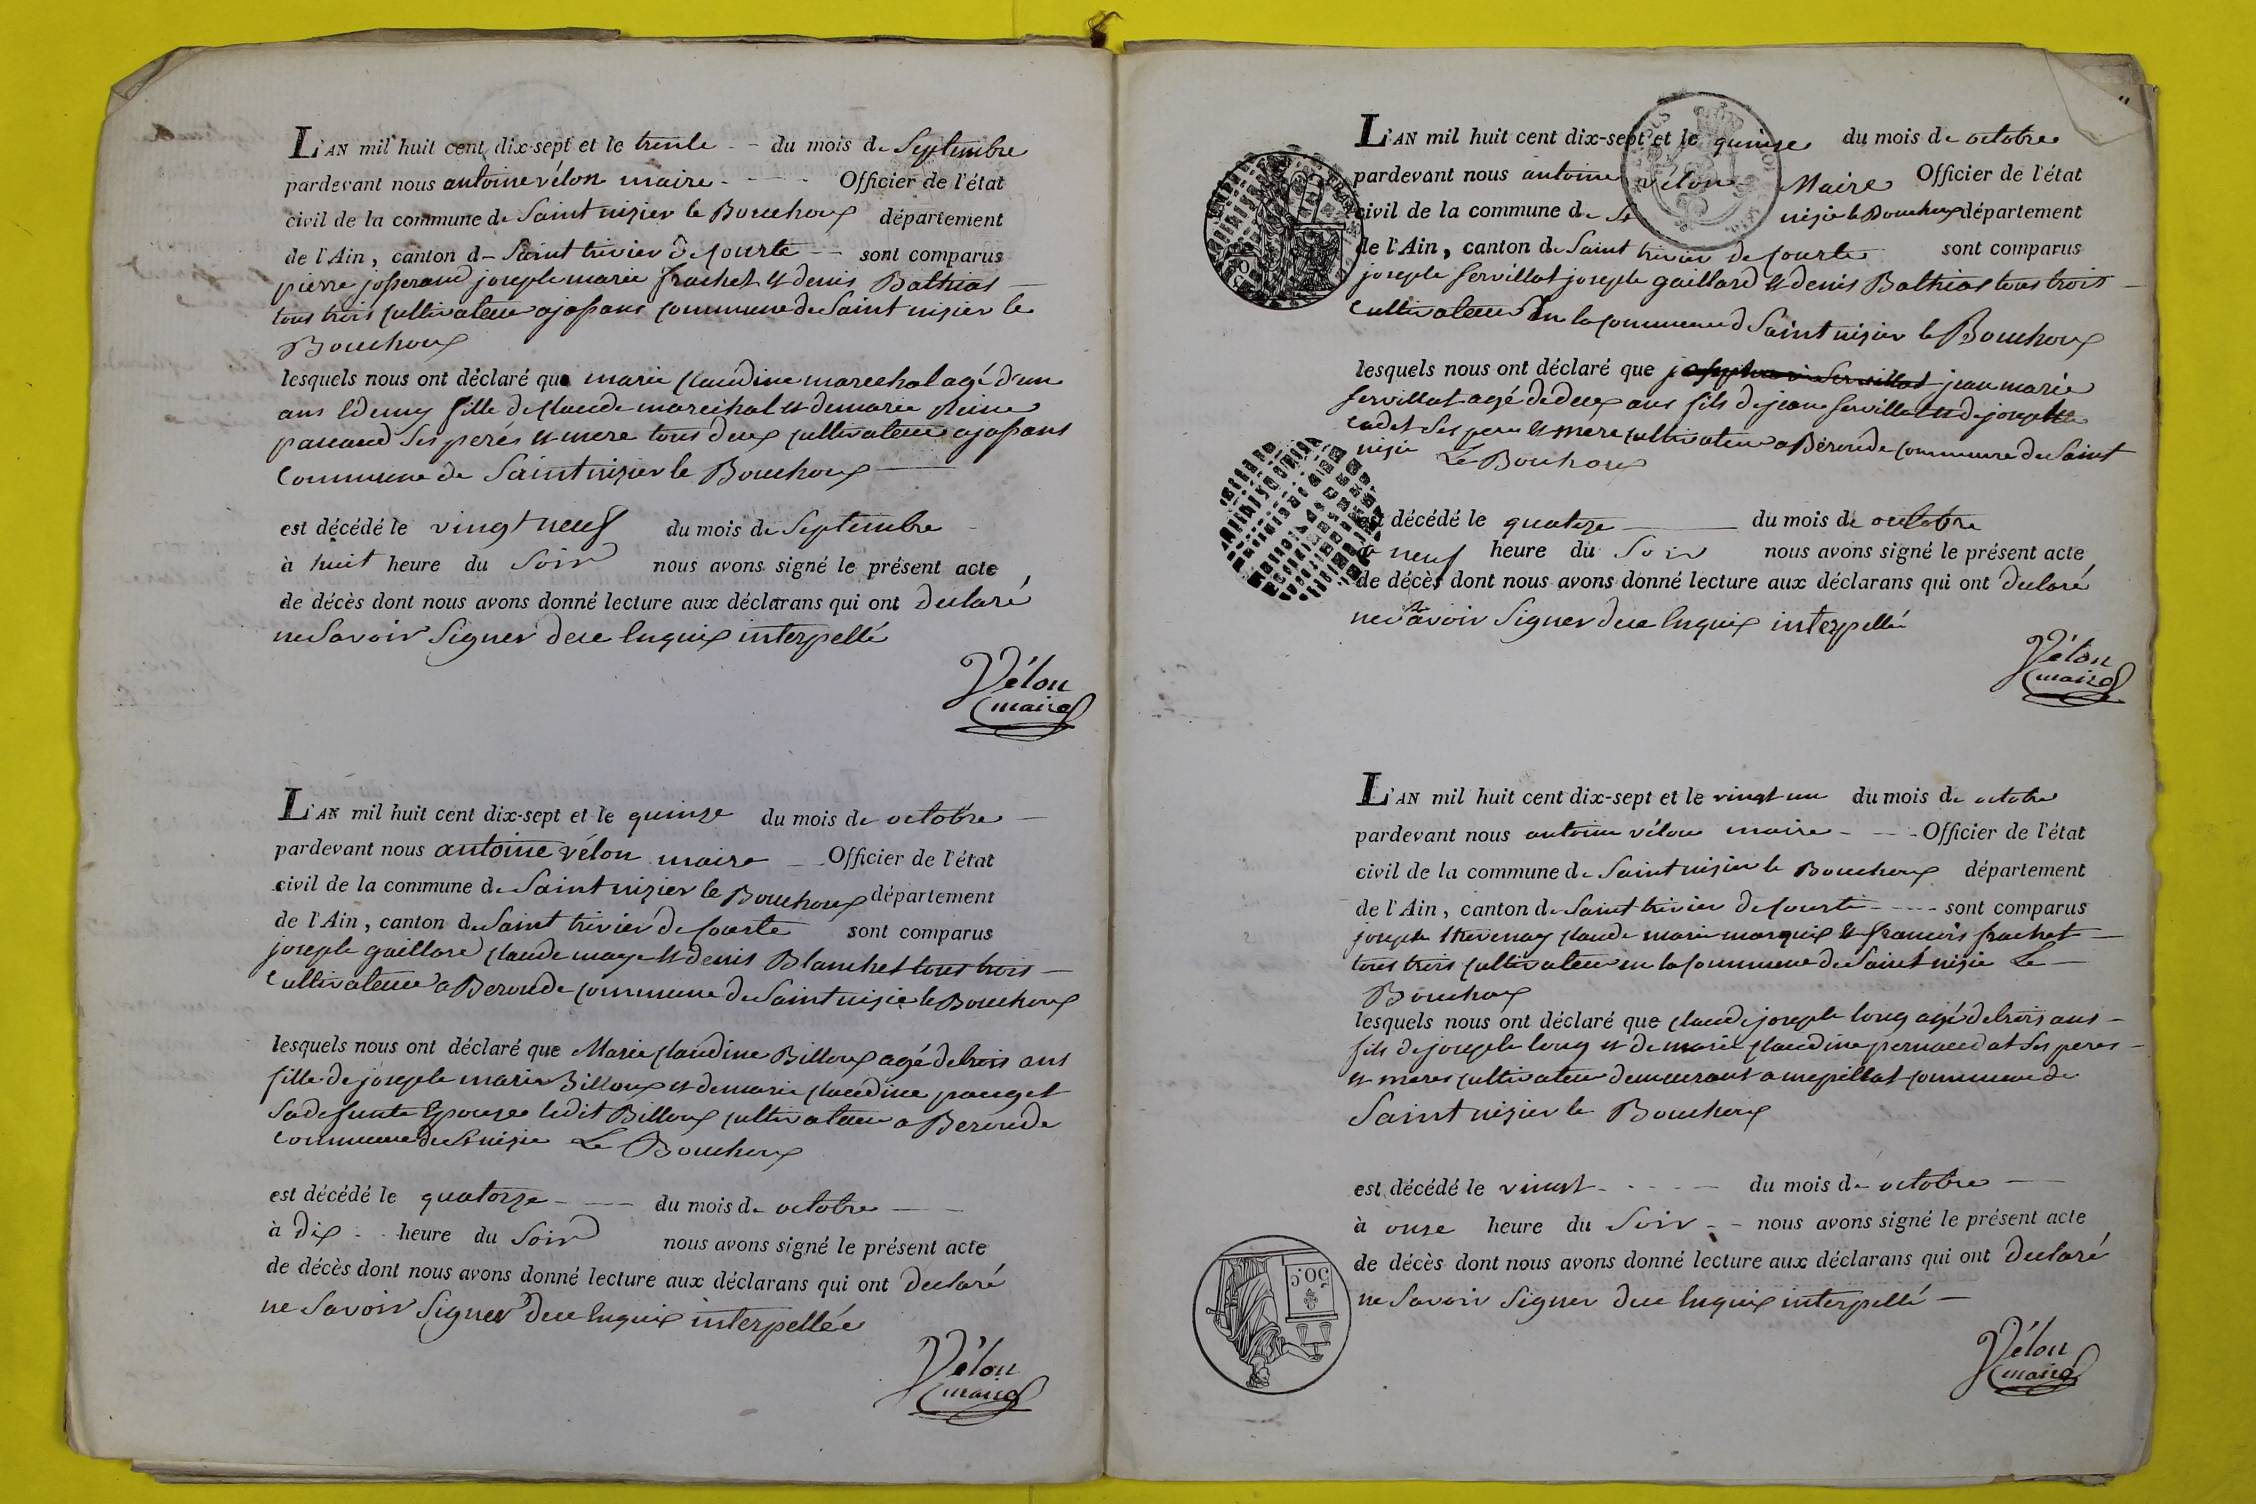 L'AN mil huit cent dix-sept et le trente - - du mois de Septembre
pardevant nous antoine vélon maire - - - - Officier de l'état
civil de la commune de Saint nizier le Bouchoux département
de l'Ain, canton de Saint trivier de courte - - sont comparus
pierre josserand joseph marie frachet et denis Bathias —
tous trois cultivateur a josans commune de Saint nizier le
Bouchoux
lesquels nous ont déclaré que marie claudine marechal agé d'un
ans et demy fille de claude marechal et de marie Reine
pauaud ses perés et mere tous deux cultivateur a josans
commune de Saint nizier le Bouchoux —
est décédé le vingt neuf du mois de Septembre
à huit heure du Soir nous avons signé le présent acte
de décès dont nous avons donné lecture aux déclarans qui ont declaré
ne Savoir Signer de ce enquix interpellé
Vélon
maire
L'AN mil huit cent dix-sept et le quinze du mois de octobre —
pardevant nous antoine vélon maire — Officier de l'état
civil de la commune de Saint nizier le Bouchoux département
de l'Ain, canton de Saint trivier de courte sont comparus
joseph gaillard claude maye et denis Blanchet tous trois —
cultivateur a Beronde commune de Saint nizie le Bouchoux
lesquels nous ont déclaré que Marie claudine Billoux agé de trois ans
fille de joseph marie Billoux et de marie claudine pauget
sa defunte Epouse ledit Billoux cultivateur a Beronde
commune de St nizie Le Bouchoux
est décédé le quatorze - — du mois de octobre —
à dix - - heure du Soir nous avons signé le présent acte
de décès dont nous avons donné lecture aux déclarans qui ont declaré
ne Savoir Signer de ce enquix interpellée
Vélon
maire
L'AN mil huit cent dix-sept et le quinze du mois de octobre
pardevant nous antoine vélon Maire Officier de l'état
civil de la commune de St nizie le Bouchoux département
de l'Ain, canton de Saint trivier de courte sont comparus
joseph servillat joseph gaillard et denis Bathias tous trois —
cultivateur En la commune de Saint nizier le Bouchoux
lesquels nous ont déclaré que jean marie
servillat agé de deux ans fils de jean servillat et de josephte
cadet ses pere et mere cultivateur a Beronde commune de Saint
nizie Le Bouchoux
est décédé le quatoze — du mois de octobre
à neuf heure du Soir nous avons signé le présent acte
de décès dont nous avons donné lecture aux déclarans qui ont declaré
ne Savoir Signer de ce enquix interpellé
Vélon
maire
L'AN mil huit cent dix-sept et le vingt un du mois de octobre
pardevant nous antoine vélon maire - - - Officier de l'état
civil de la commune de Saint nizier le Bouchoux département
de l'Ain, canton de Saint trivier de courte - - - - sont comparus
joseph thevenay claude marie marquix et francois frachet —
tous trois cultivateur en la commune de Saint nizie Le —
Bouchoux
lesquels nous ont déclaré que claude joseph long agé de trois ans —
fils de joseph long et de marie claudine pernaudat ses peres —
et meres cultivateur demeurant a mepillat commune de
Saint nizier le Bouchoux
est décédé le vingt - - - - — du mois de octobre —
à onze heure du Soir - - nous avons signé le présent acte
de décès dont nous avons donné lecture aux déclarans qui ont declaré
ne Savoir Signer de ce enquix interpellé —
50.C
Vélon
maire